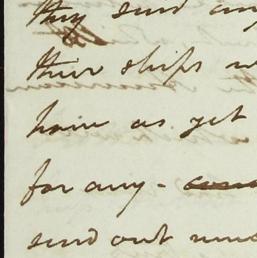 they send any
their ships w
have as yet
for any -
send out